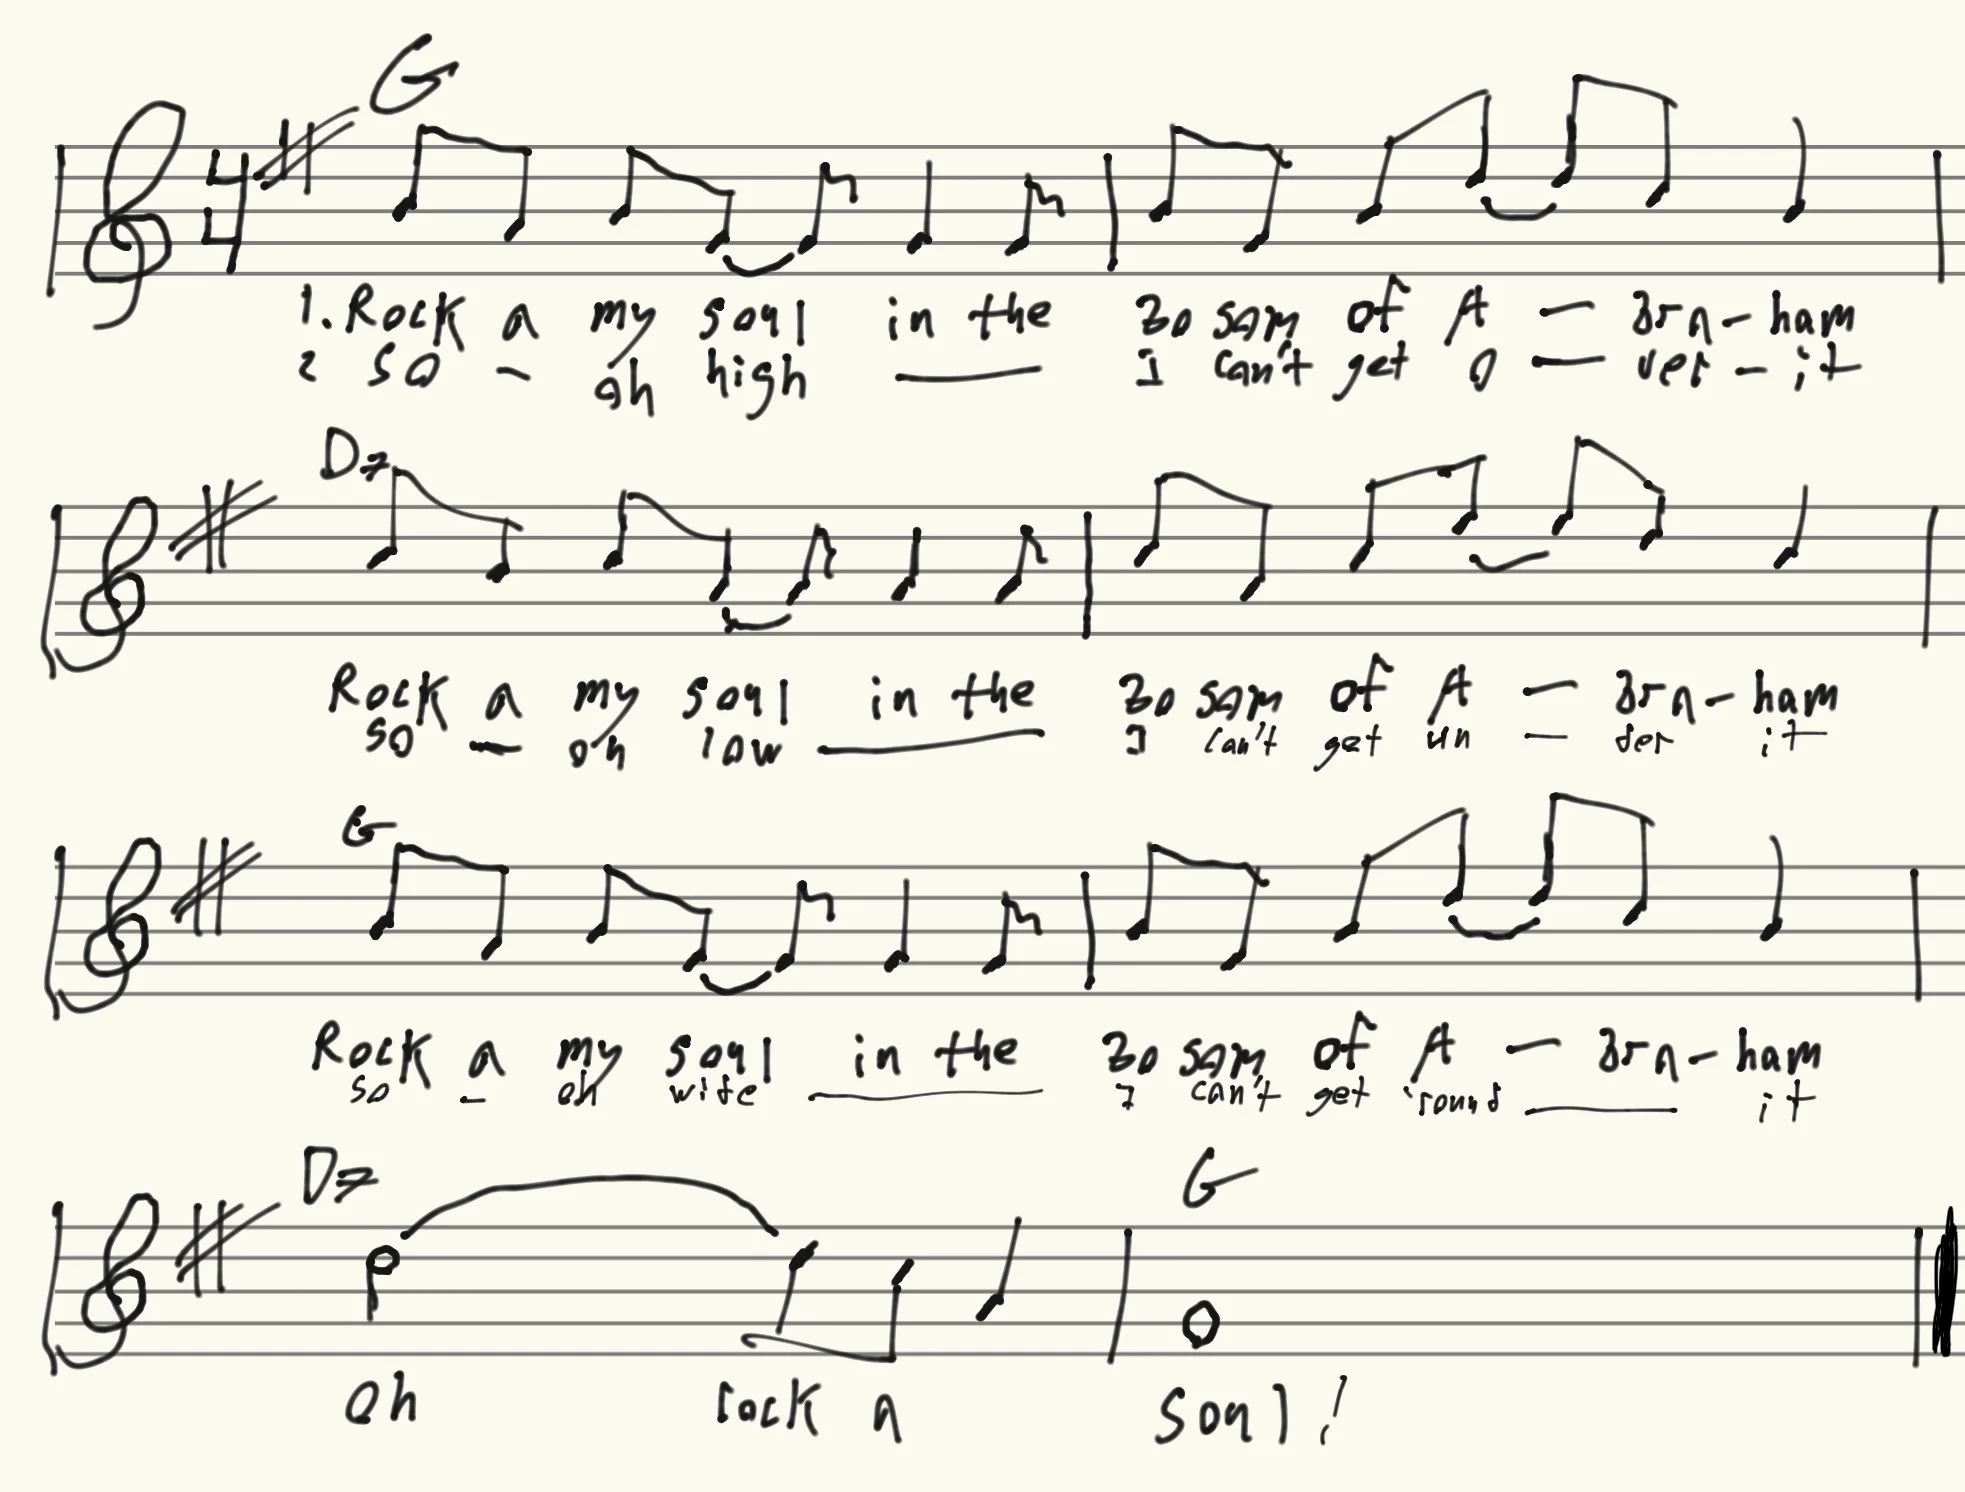 G
1. Rock a my soul in the Bo som of A — Bra - ham
2 SO - oh high ____ I can't get O — ver - it
D7
Rock a my soul in the Bo som of A — Bra - ham
SO — oh low ____ I can't get un — der it
G
Rock a my soul in the Bo som of A — Bra - ham
so - oh wide ____ I can't get 'round ____ it
D7 G
Oh rock a soul!